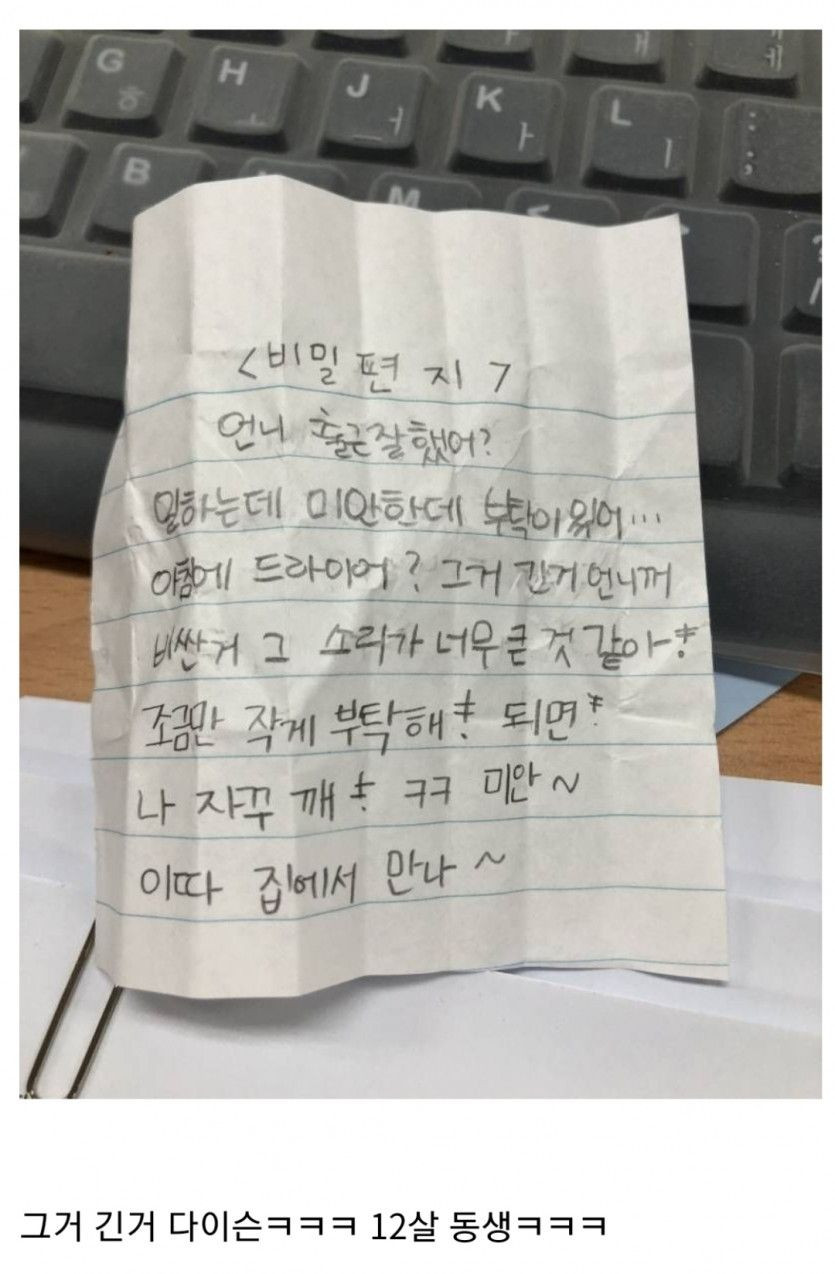 G ㅎ
H ㅗ
J ㅓ
K ㅏ
L ㅣ
; :
B
M
?
/
<비밀 편 지>
언니 출근잘했어?
일하는데 미안한데 부탁이있어...
아침에 드라이어? 그거 긴거 언니꺼
비싼거 그 소리가 너무 큰 것 같아ㅎ
조금만 작게 부탁해ㅎ 되면ㅎ
나 자꾸 깨ㅎ ㅋㅋ 미안~
이따 집에서 만나~
그거 긴거 다이슨ㅋㅋㅋ 12살 동생ㅋㅋㅋ